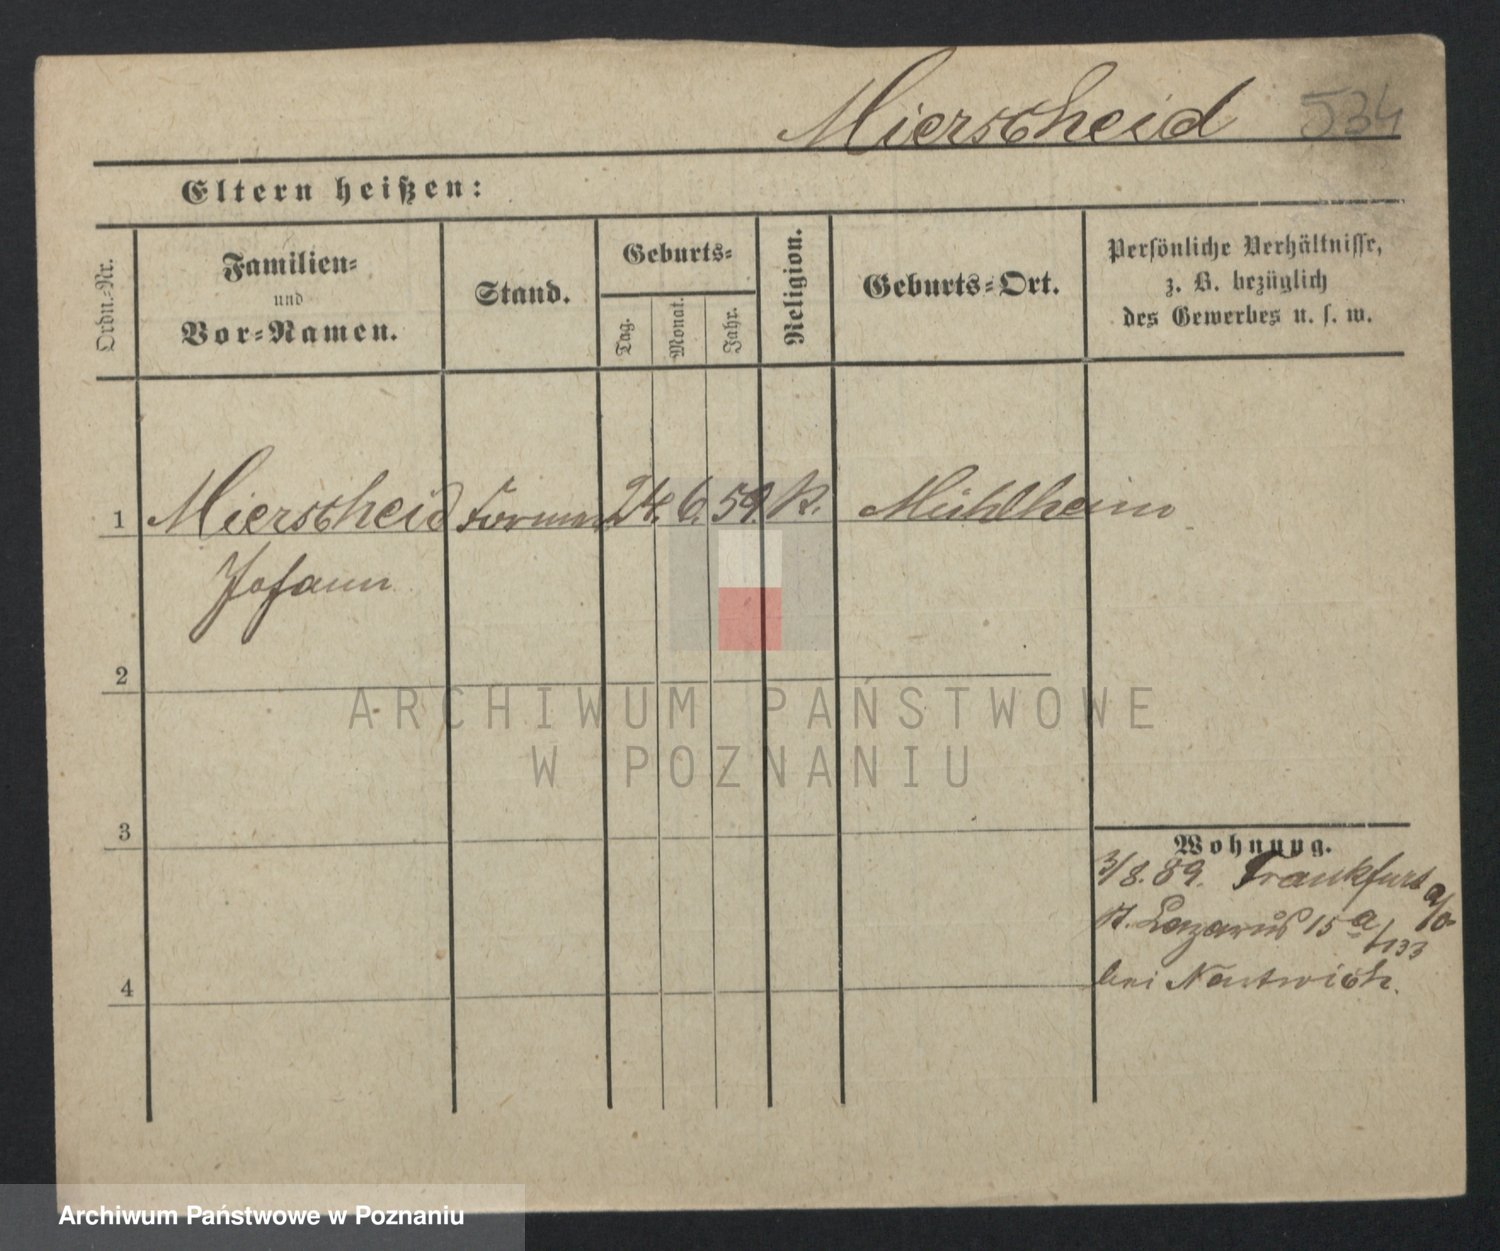 Mierscheid 534
Eltern heißen:
Ordn.-Nr.
Familien-
und
Vor-Namen.
Stand.
Geburts-
Tag.
Monat.
Jahr.
Religion.
Geburts-Ort.
Persönliche Verhältnisse,
z. B. bezüglich
des Gewerbes u. s. w.
1 Mierscheid Former 24. 6. 59. K. Mühlheim
Johann
2
ARCHIWUM PAŃSTWOWE
W POZNANIU
3
Wohnung.
3/8. 89. Frankfurt a/O.
St. Lazarus 15 a/133
4 bei Nentwich.
Archiwum Państwowe w Poznaniu